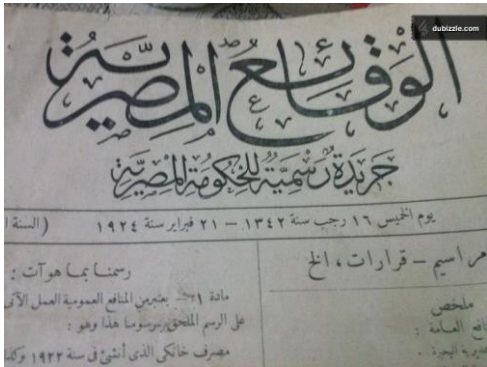 dubizzle.com
الوقائع المصرية
جريدة رسمية للحكومة المصرية
يوم الخميس ١٦ رجب سنة ١٣٤٢ — ٢١ فبراير سنة ١٩٢٤ (السنة
مراسيم – قرارات، الخ
ملخص
افع العامة :
البحيرة :
رسمنا بما هوآت :
مادة ١ — يعتبر من المنافع العمومية العمل الآتى
على الرسم الملحق بمرسومنا هذا وهو :
مصرف خانكى الذى أنشئ فى سنة ١٩٢٢